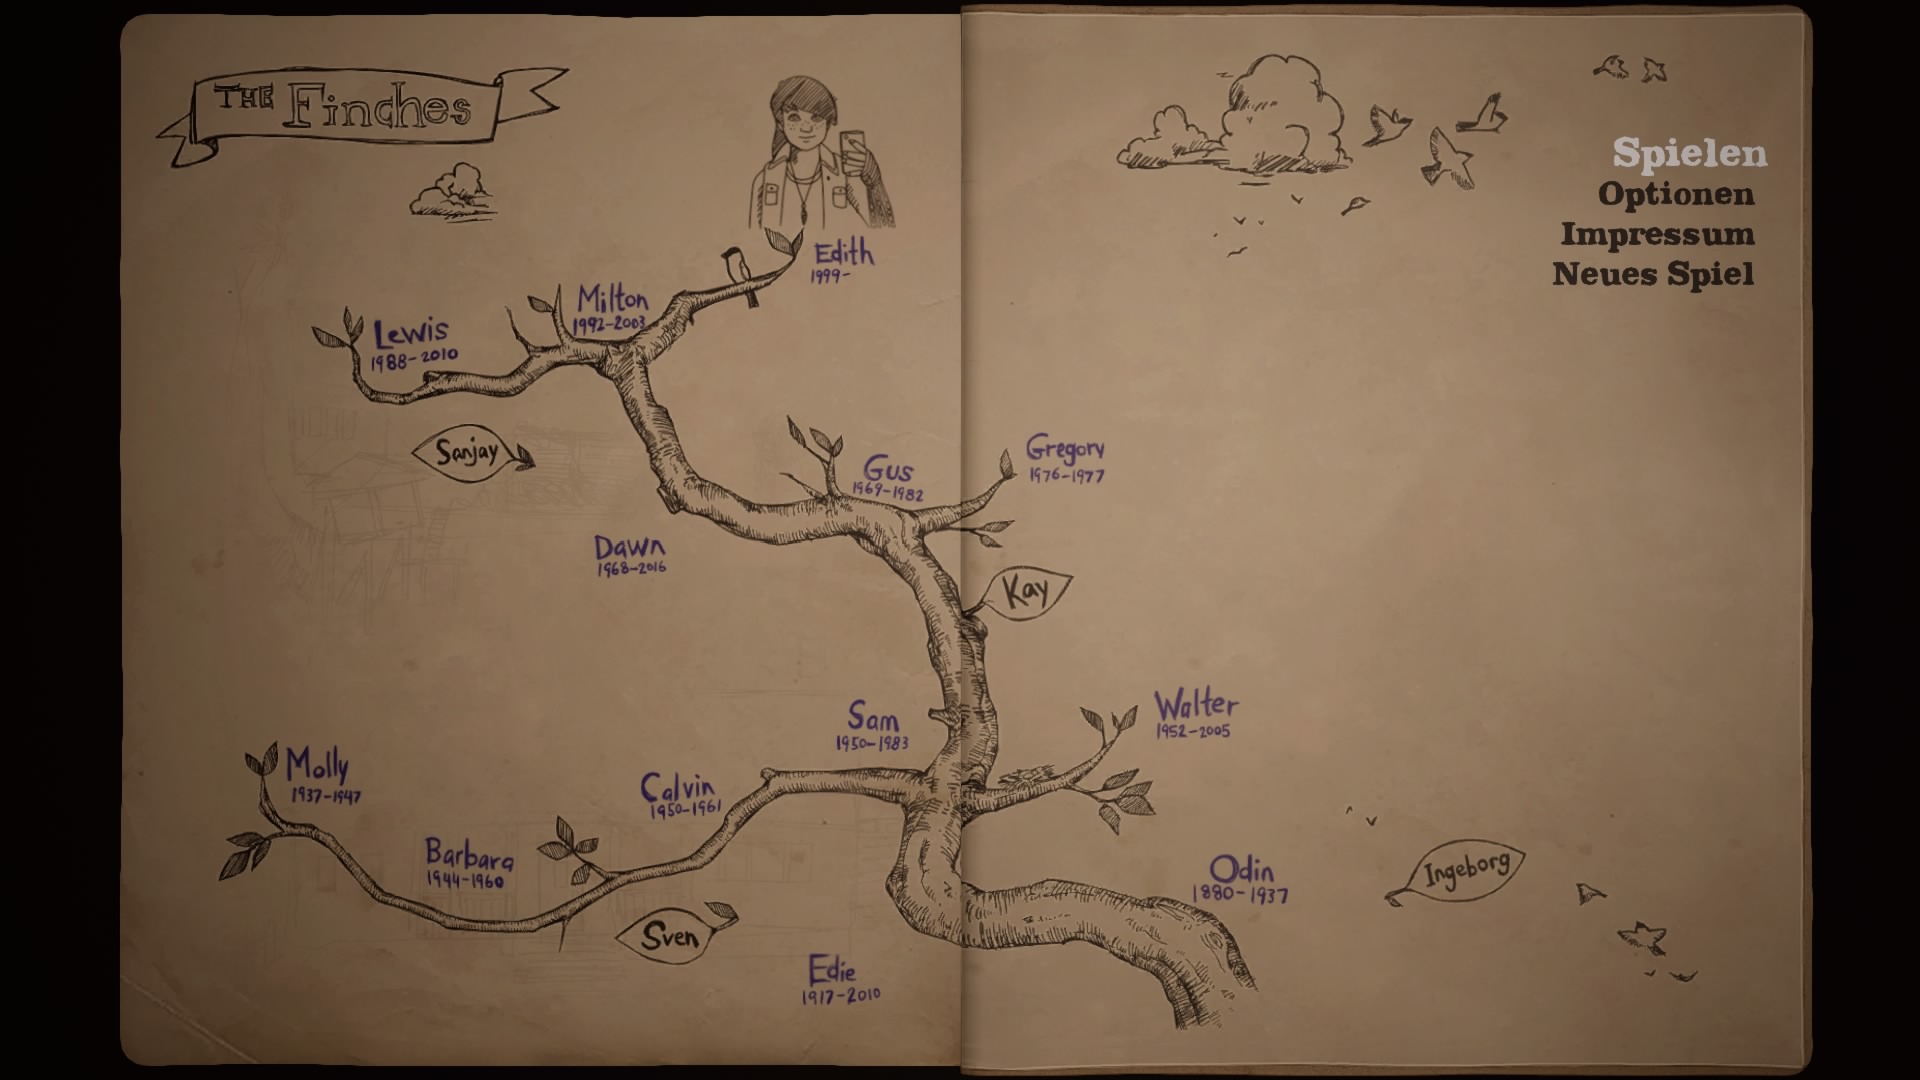 THE Finches
Spielen
Optionen
Impressum
Neues Spiel
Edith
1999-
Milton
1992-2003
Lewis
1988-2010
Sanjay
Gus
1969-1982
Gregory
1976-1977
Dawn
1968-2016
Kay
Sam
1950-1983
Walter
1952-2005
Molly
1937-1947
Calvin
1950-1961
Barbara
1944-1960
Odin
1880-1937
Ingeborg
Sven
Edie
1917-2010